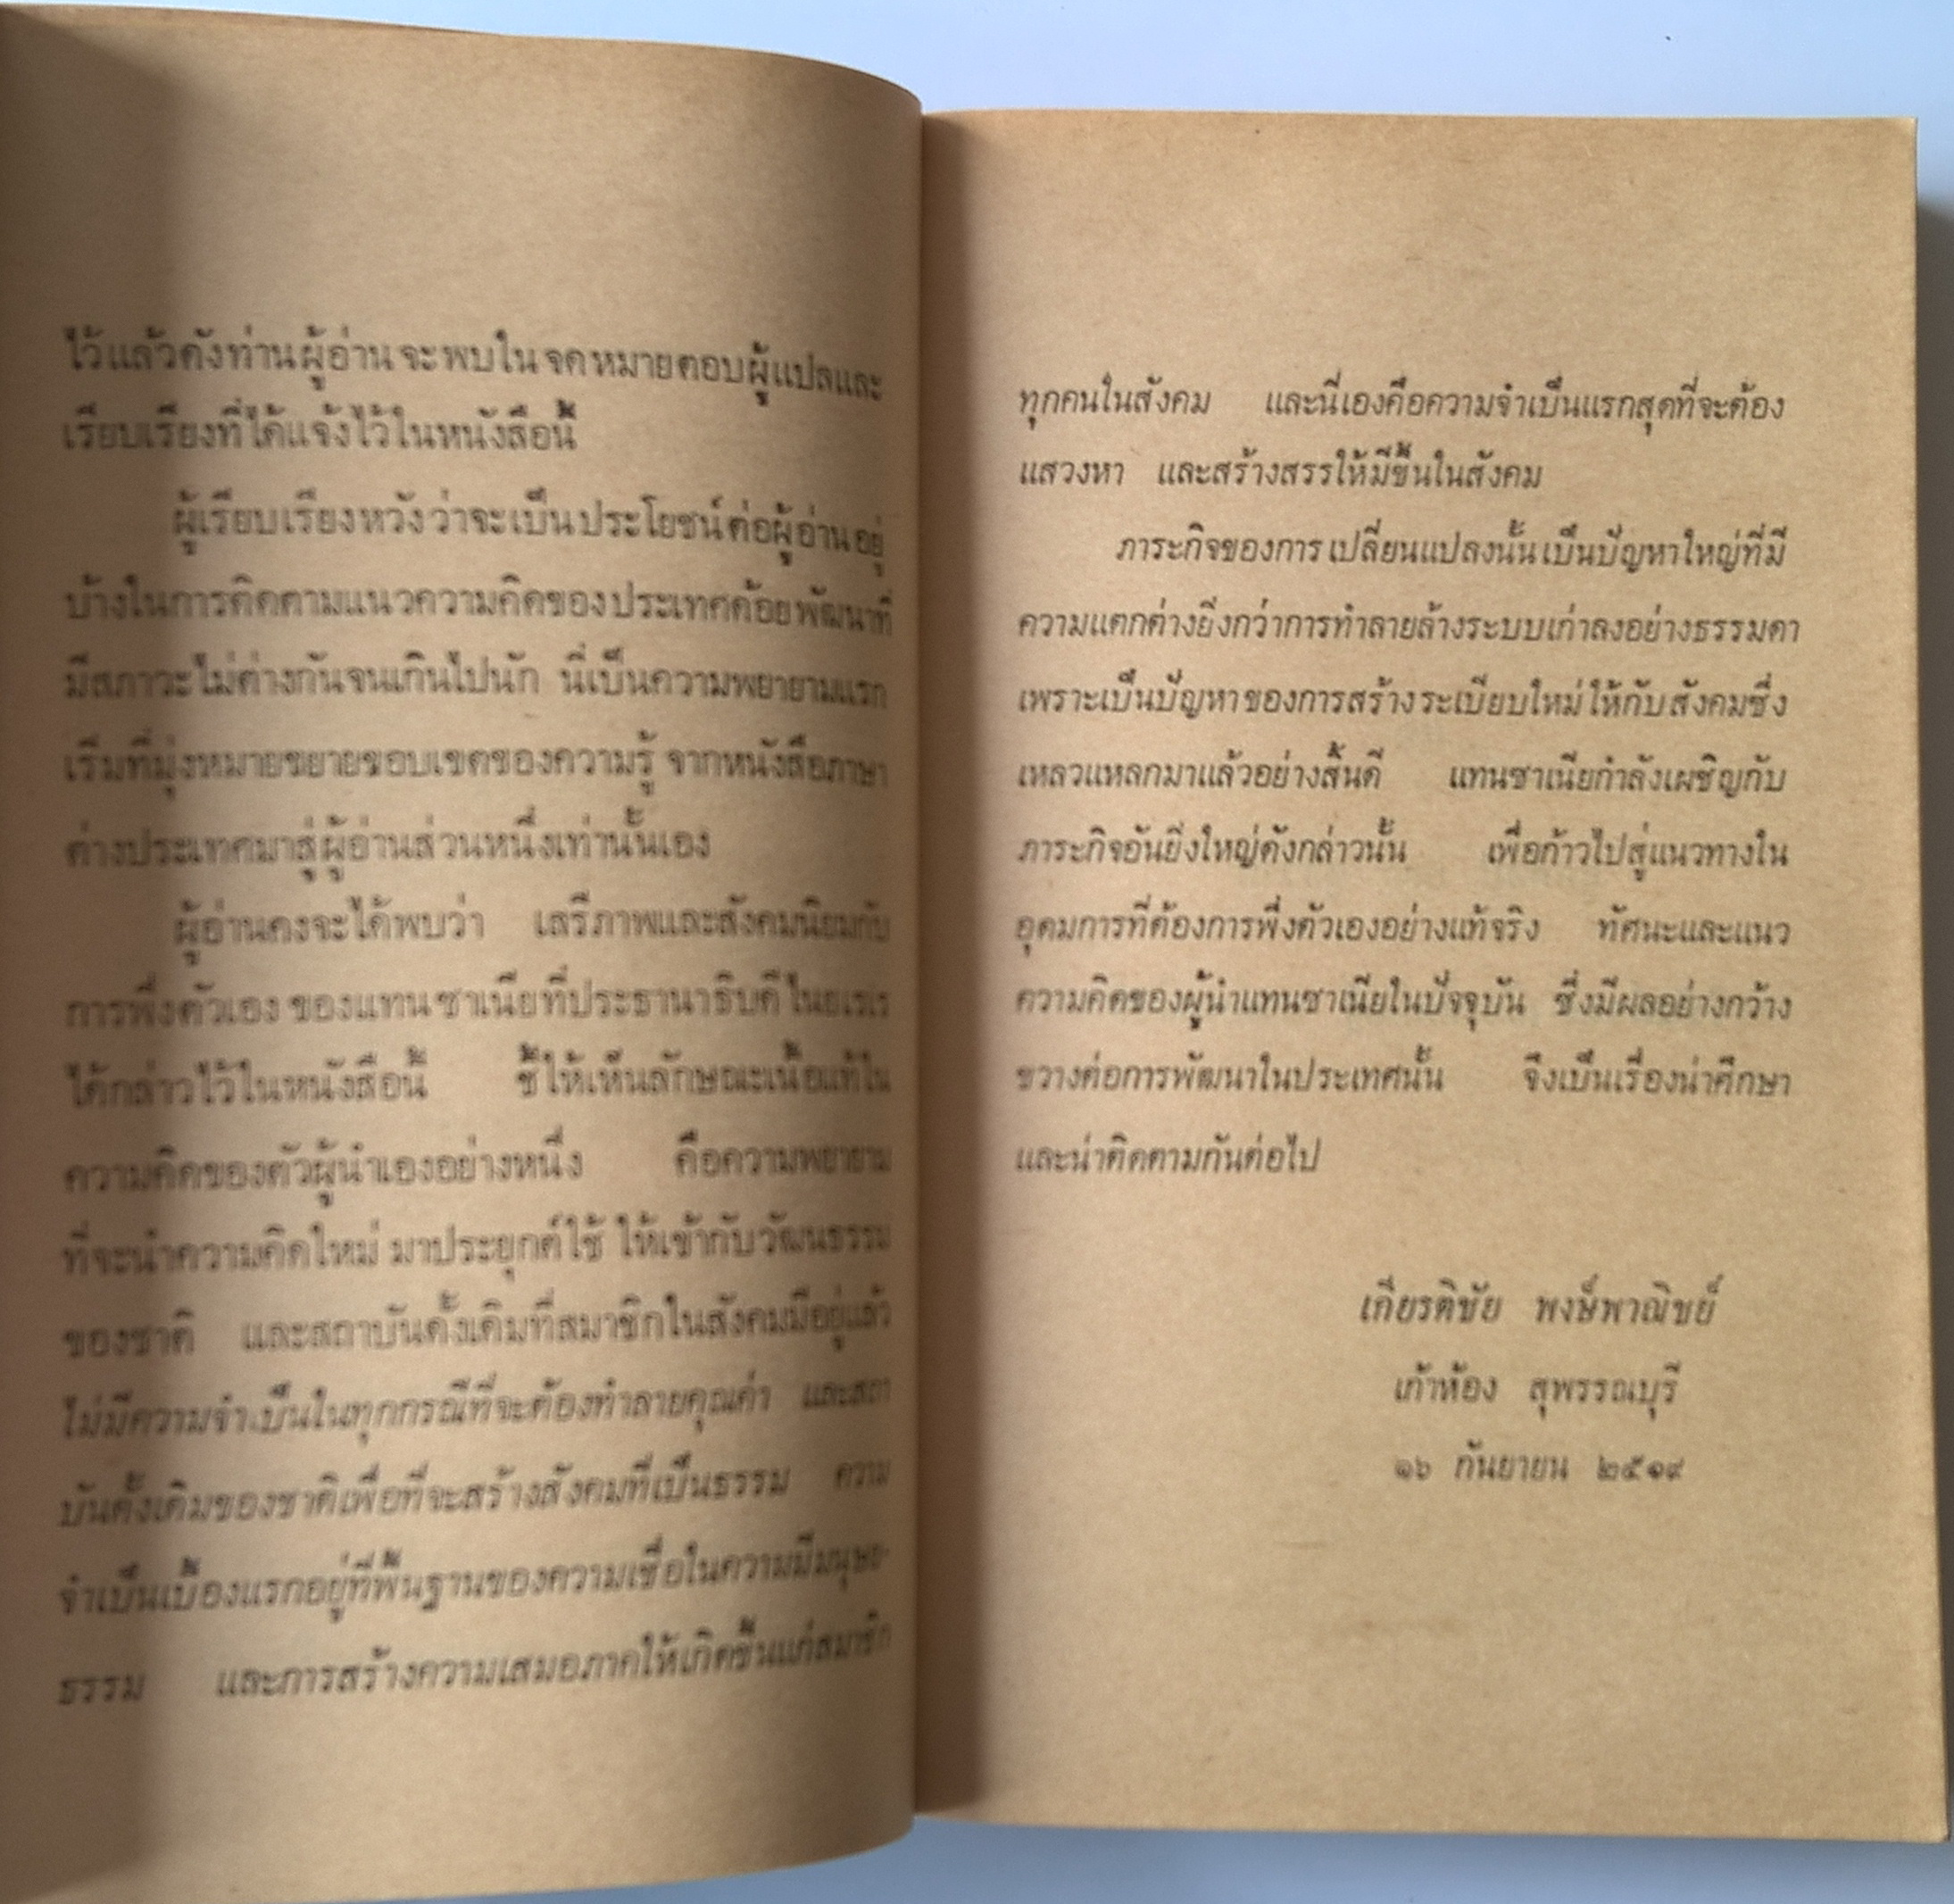 ไว้แล้วดังท่านผู้อ่านจะพบในจดหมายตอบผู้แปลและ
เรียบเรียงที่ได้แจ้งไว้ในหนังสือนี้
ผู้เรียบเรียงหวังว่าจะเป็นประโยชน์ต่อผู้อ่านอยู่
บ้างในการติดตามแนวความคิดของประเทศด้อยพัฒนาที่
มีสภาวะไม่ต่างกันจนเกินไปนัก นี่เป็นความพยายามแรก
เริ่มที่มุ่งหมายขยายขอบเขตของความรู้ จากหนังสือภาษา
ต่างประเทศมาสู่ผู้อ่านส่วนหนึ่งเท่านั้นเอง
ผู้อ่านคงจะได้พบว่า เสรีภาพและสังคมนิยมกับ
การพึ่งตัวเอง ของแทนซาเนียที่ประธานาธิบดีไนยเรเร
ได้กล่าวไว้ในหนังสือนี้ ชี้ให้เห็นลักษณะเนื้อแท้ใน
ความคิดของตัวผู้นำเองอย่างหนึ่ง คือความพยายาม
ที่จะนำความคิดใหม่ มาประยุกต์ใช้ ให้เข้ากับวัฒนธรรม
ของชาติ และสถาบันดั้งเดิมที่สมาชิกในสังคมมีอยู่แล้ว
ไม่มีความจำเป็นในทุกกรณีที่จะต้องทำลายคุณค่า และสถา
บันดั้งเดิมของชาติเพื่อที่จะสร้างสังคมที่เป็นธรรม ความ
จำเป็นเบื้องแรกอยู่ที่พื้นฐานของความเชื่อในความมีมนุษย-
ธรรม และการสร้างความเสมอภาคให้เกิดขึ้นแก่สมาชิก
ทุกคนในสังคม และนี่เองคือความจำเป็นแรกสุดที่จะต้อง
แสวงหา และสร้างสรรให้มีขึ้นในสังคม
ภาระกิจของการเปลี่ยนแปลงนั้นเป็นปัญหาใหญ่ที่มี
ความแตกต่างยิ่งกว่าการทำลายล้างระบบเก่าลงอย่างธรรมดา
เพราะเป็นปัญหาของการสร้างระเบียบใหม่ให้กับสังคมซึ่ง
เหลวแหลกมาแล้วอย่างสิ้นดี แทนซาเนียกำลังเผชิญกับ
ภาระกิจอันยิ่งใหญ่ดังกล่าวนั้น เพื่อก้าวไปสู่แนวทางใน
อุดมการที่ต้องการพึ่งตัวเองอย่างแท้จริง ทัศนะและแนว
ความคิดของผู้นำแทนซาเนียในปัจจุบัน ซึ่งมีผลอย่างกว้าง
ขวางต่อการพัฒนาในประเทศนั้น จึงเป็นเรื่องน่าศึกษา
และน่าติดตามกันต่อไป
เกียรติชัย พงษ์พาณิชย์
เก้าห้อง สุพรรณบุรี
๑๖ กันยายน ๒๕๑๙